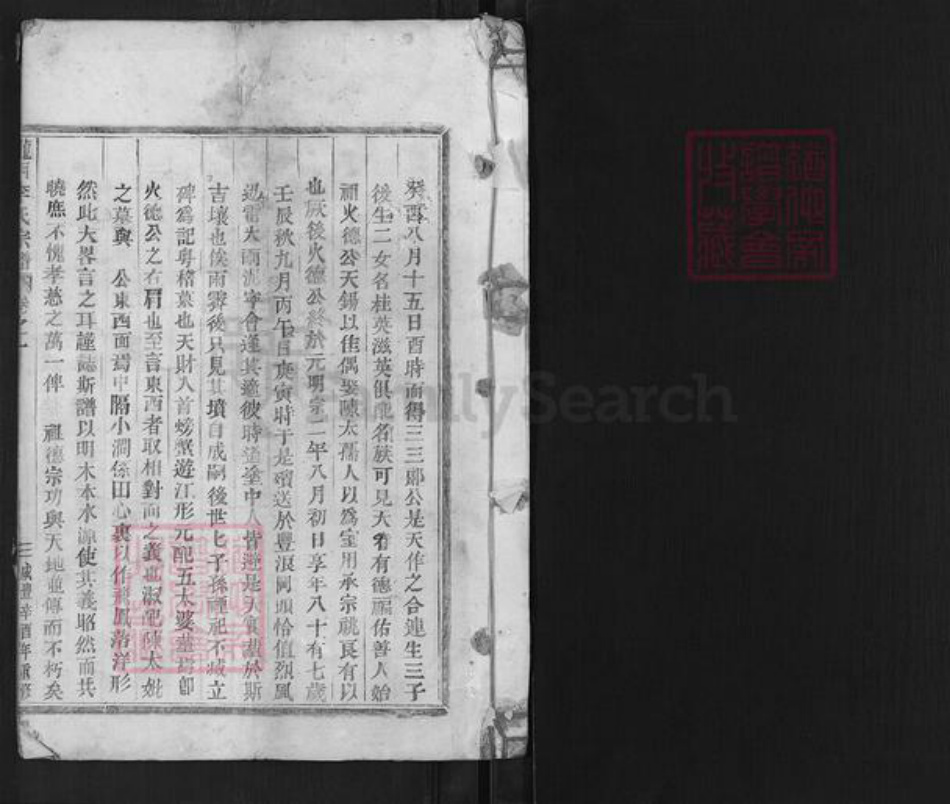 癸酉八月十五日酉時而得三三郎公是天作之合連生三子
後生二女名桂英滋英俱配名族可見大有德福佑善人始
祖火德公天錫以佳偶娶陳太孺人以為室用承宗祧良有以
也厥後火德公終於元明宗二年八月初日享年八十有七歲
壬辰秋九月丙午日庚寅時于是殯送於豐浪岡頭恰值烈風
迅雷大雨 適彼時 塗中人皆避是天 於斯
吉壤也俟雨霽後只見其墳自成嗣後世匕子孫禋祀不 立
碑為記粤稽墓也天財入首螃蟹遊江形元配五太婆 即
火德公之右肩也至言東西者取相對而之義也淑配陳太妣
之墓與 公東西面焉中隔小澗係田心裏以作 鳳落洋形
然此大畧言之耳謹誌斯譜以明木本水源使其義昭然而共
曉庶不愧孝慈之萬一俾 祖德宗功與天地並傳而不朽矣
李氏宗譜 卷之一 三 咸豐辛酉年重修
FamilySearch